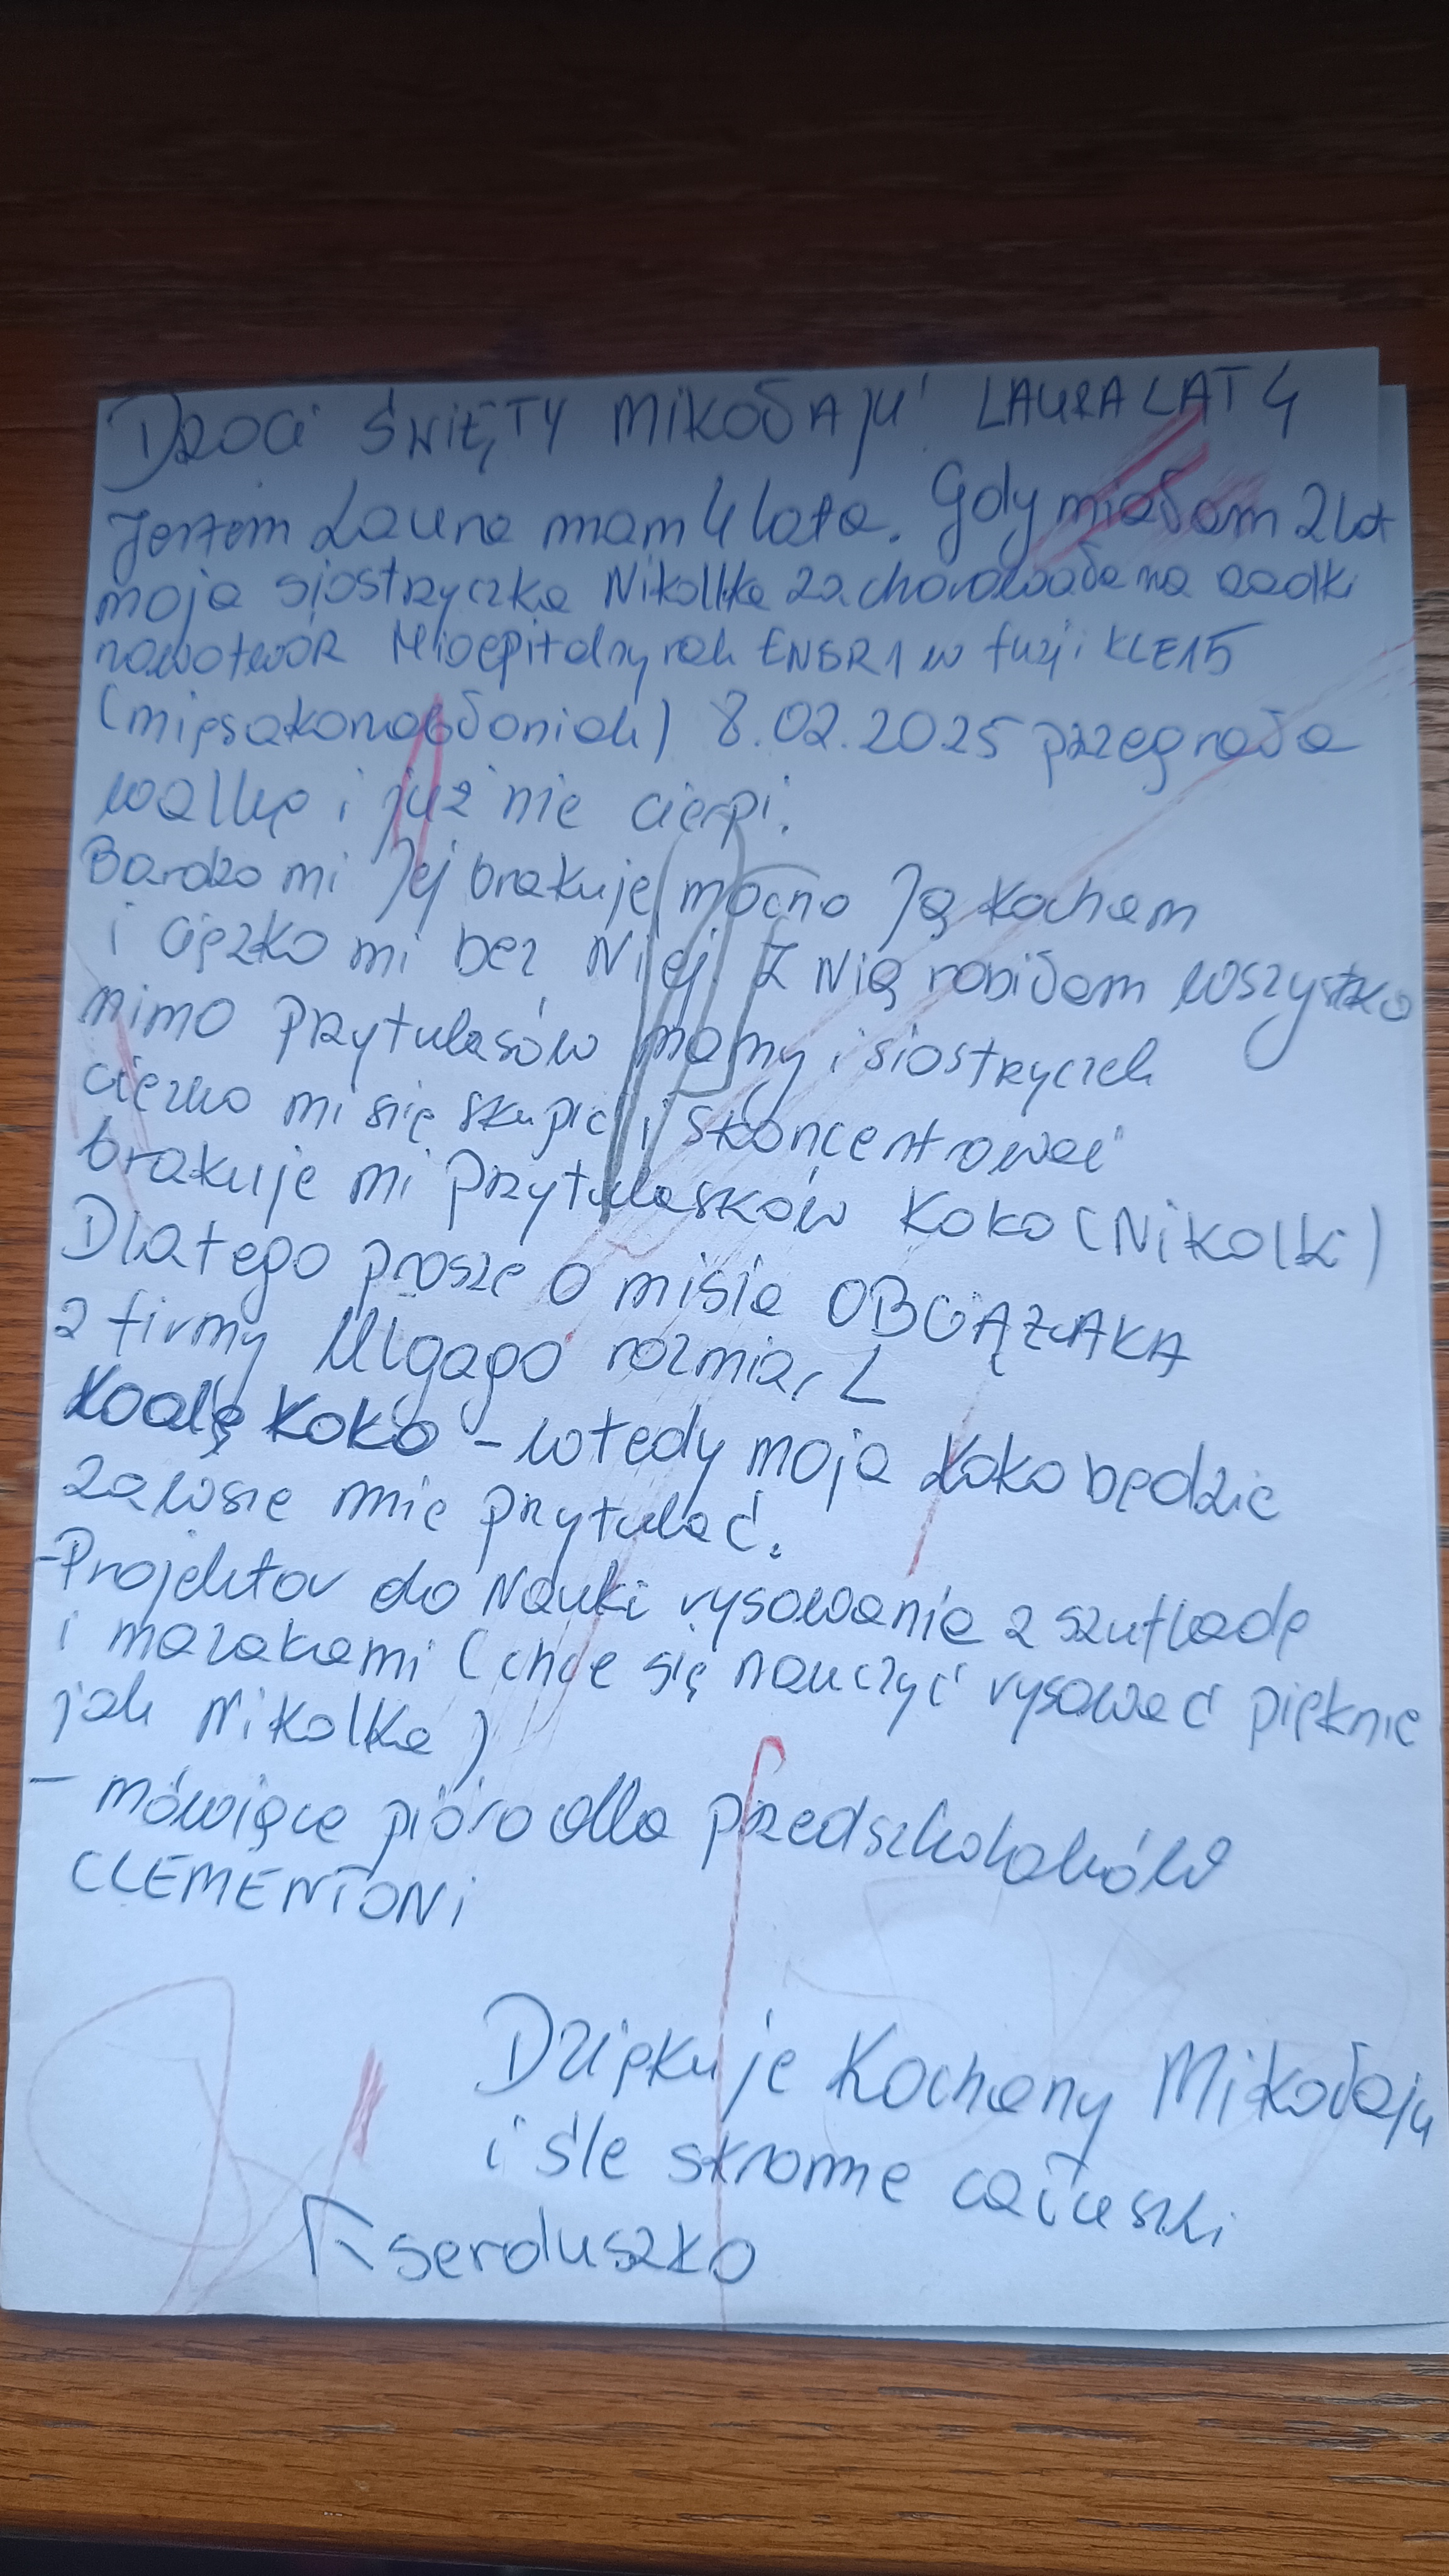 DROGI ŚWIĘTY MIKOŁAJU LAURA LAT 4
Jestem Laura mam 4 lata. Gdy miałam 2 lat
moja siostrzyczka Nikolka zachorowała na rzadki
nowotwór Mioepitelny rak w fuzji KLF15
(mięsakonabłoniak) 8.02.2025 przegrała
walkę i już nie cierpi.
Bardzo mi Jej brakuje mocno Ją kocham
i ciężko mi bez Niej. Z Nią robiłam wszystko
mimo przytulasów mamy i siostryczek
ciężko mi się skupić i skoncentrować
brakuje mi przytulasków Koko (Nikolki)
Dlatego prosze o misia OBCIĄŻAKA
z firmy Ulgago rozmiar L
Koalę Koko - wtedy moja Koko będzie
zawsze mnie przytulać.
-Projektor do Nauki rysowania z szufladą
i mazakami (chce się nauczyć rysować pięknie
jak Nikolka)
- mówiące pióro dla przedszkolaków
CLEMENTONI
Dziękuje Kochany Mikołaju
i śle skromne całuski
serduszko